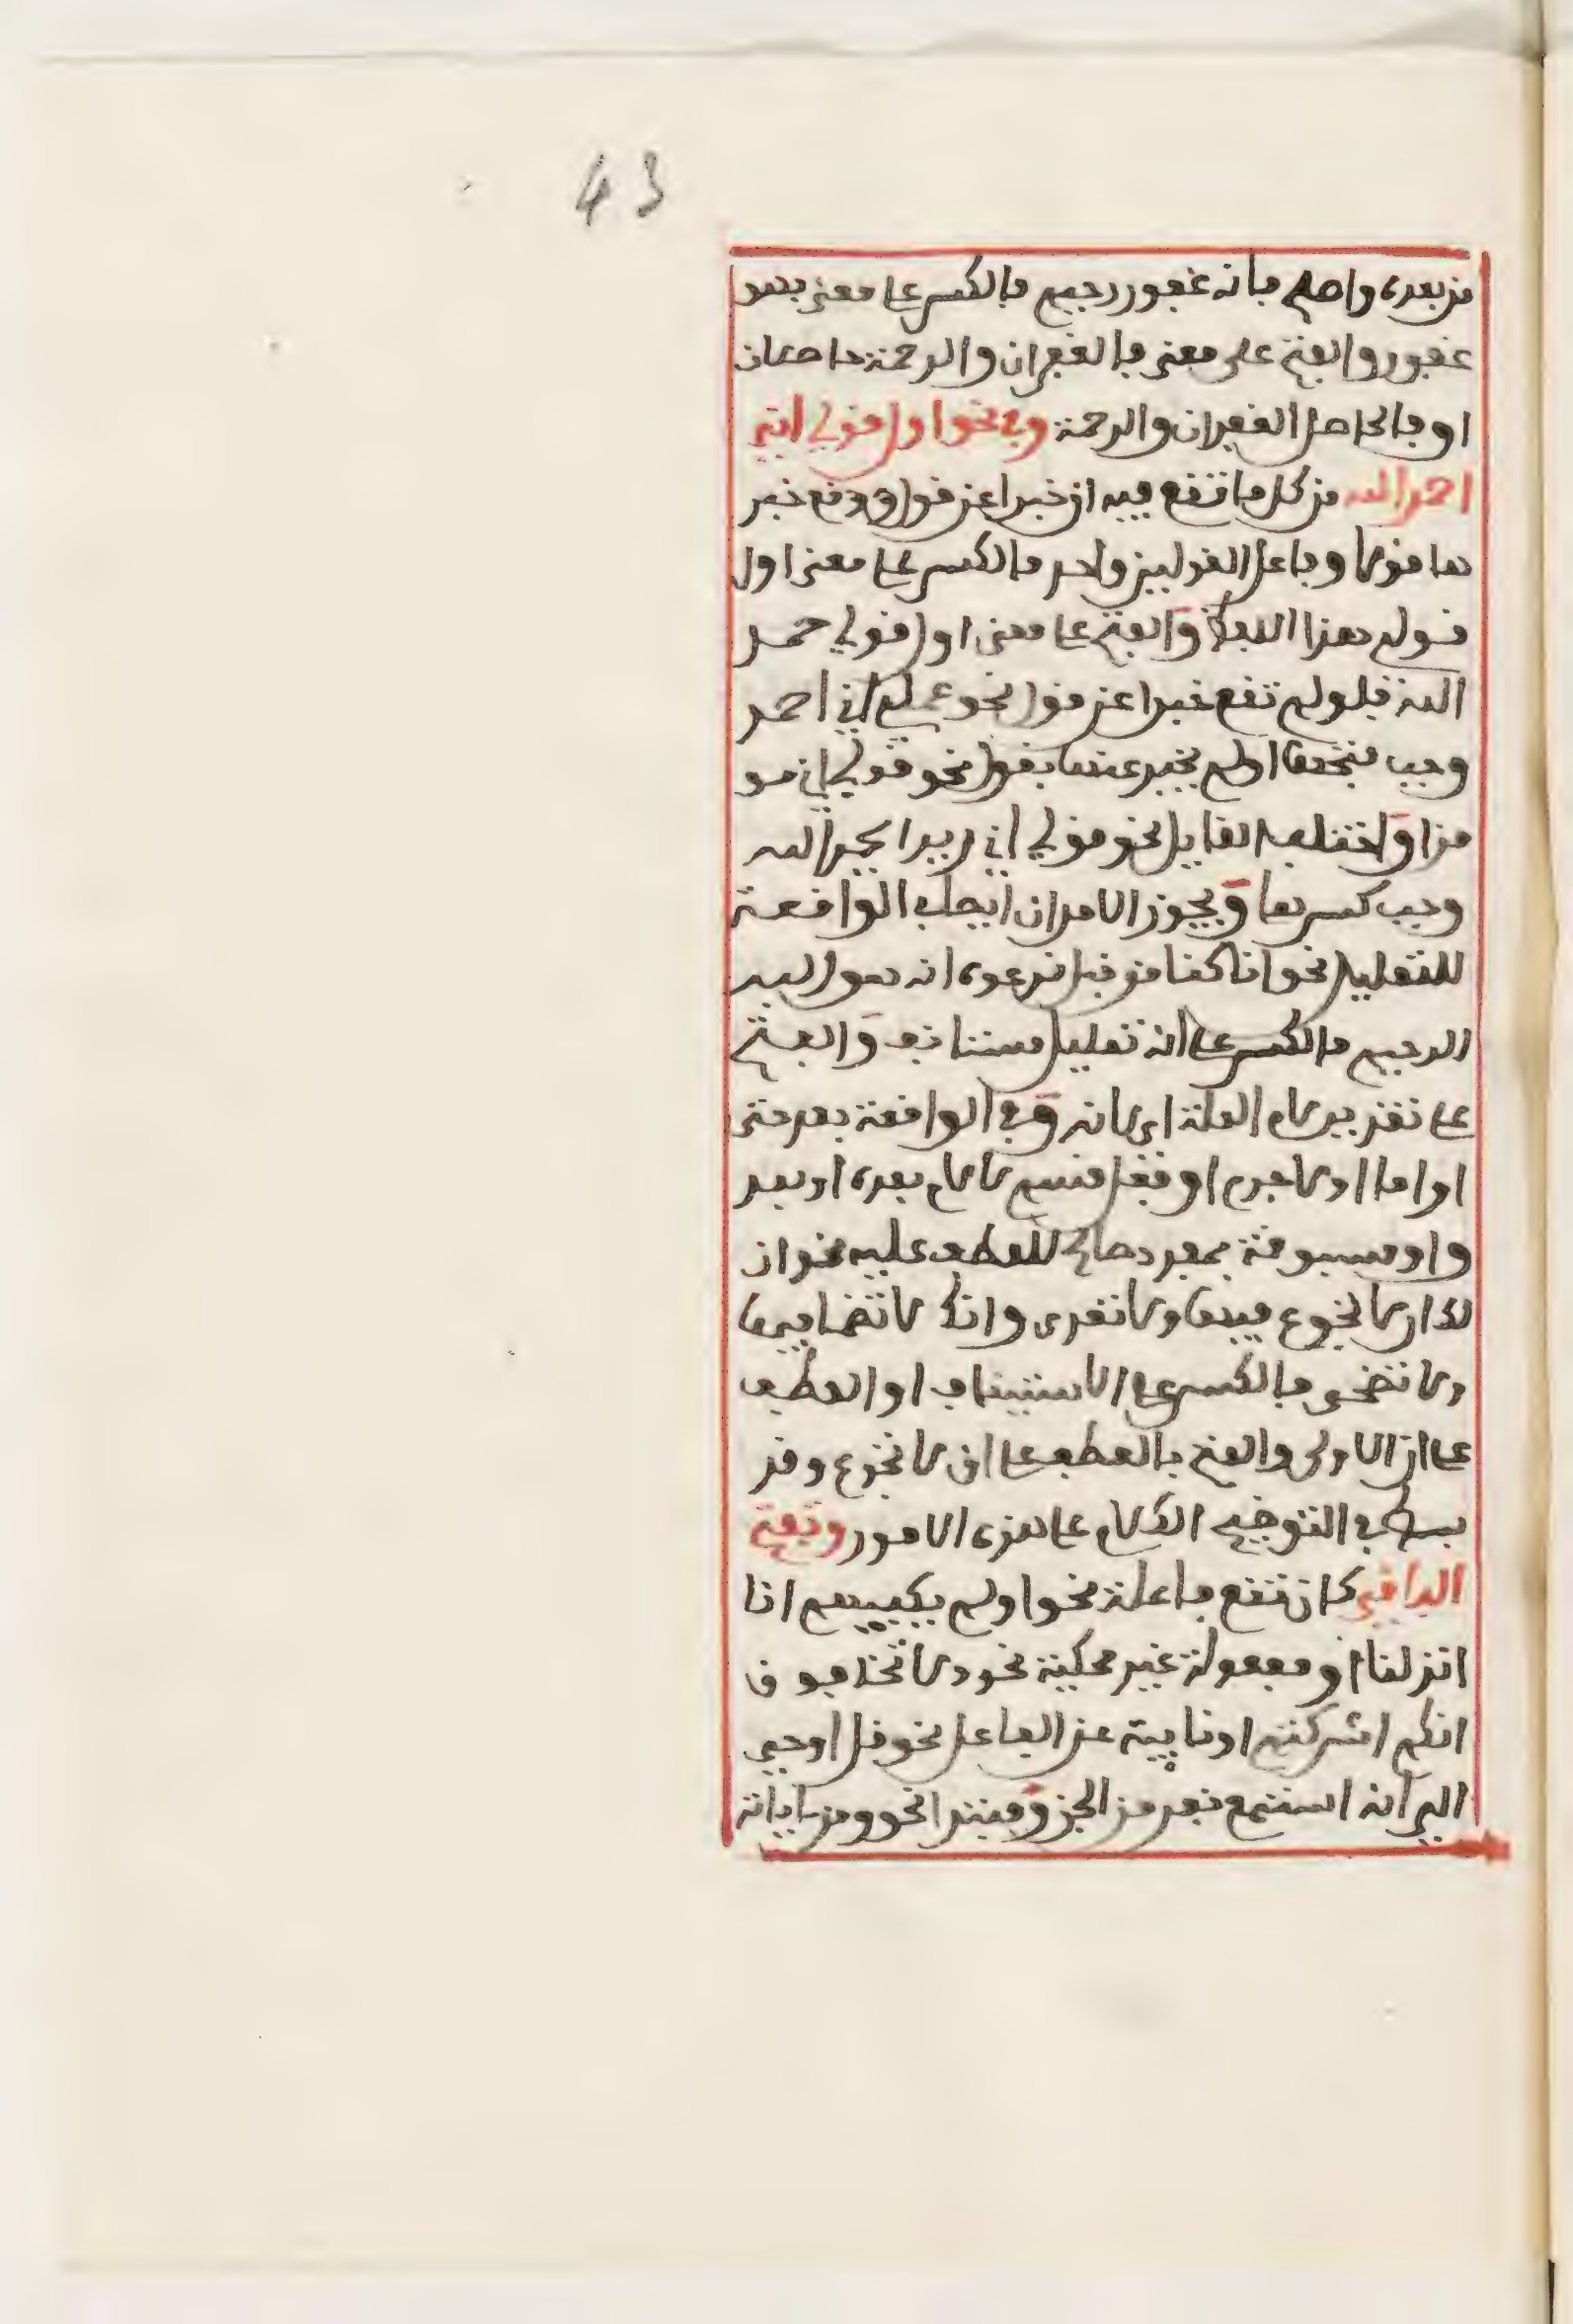 43
من بعده واصلح فانه غفور رحيم فالكسر على معنى فهو
غفور والفتح على معنى فالغفران والرحمة حاصلان
او فالحاصل الغفران والرحمة وفي نحو اول قولي انى
احمد الله من كل ما تقع فيه ان خبرا عن قول ووقع خبر
ها قولا وفاعل القولين واحد فالكسر على معنى اول
قولي هذا اللفظ والفتح على معنى اول قولي حمد
الله فلو لم تقع خبرا عن قول نحو عملي اني احمد
وجب فتحها او لم يخبر عنها بقول نحو قولي اني مو
من او اختلف القايل نحو قولي ان زيدا يحمد الله
وجب كسرها ويجوز الامران ايضا في الواقعة
للتعليل نحو انا كنا من قبل ندعوه انه هو البر
الرحيم فالكسر على انه تعليل مستانف والفتح
على تقدير لام العلة اي لانه وفي الواقعة بعد حتى
او اما او لا جرم او فعل قسم لا لام بعده او بعد
واو مسبوقة بمفرد صالح للعطف عليه نحو ان
لك ان لا تجوع فيها ولا تعرى وانك لا تظما فيها
ولا تضحى فالكسر على الاستيناف او العطف
على ان الاولى والفتح بالعطف على ان لا تجوع وقد
بسط في التوضيح الكلام على هذه الامور وتفتح
الباقي كان تقع فاعلة نحو اولم يكفيهم انا
انزلنا او مفعولة غير محكية نحو ولا تخافون
انكم اشركتم او نايبة عن الفاعل نحو قل اوحي
الي انه استمع نفر من الجن ومبتدا نحو ومن اياته